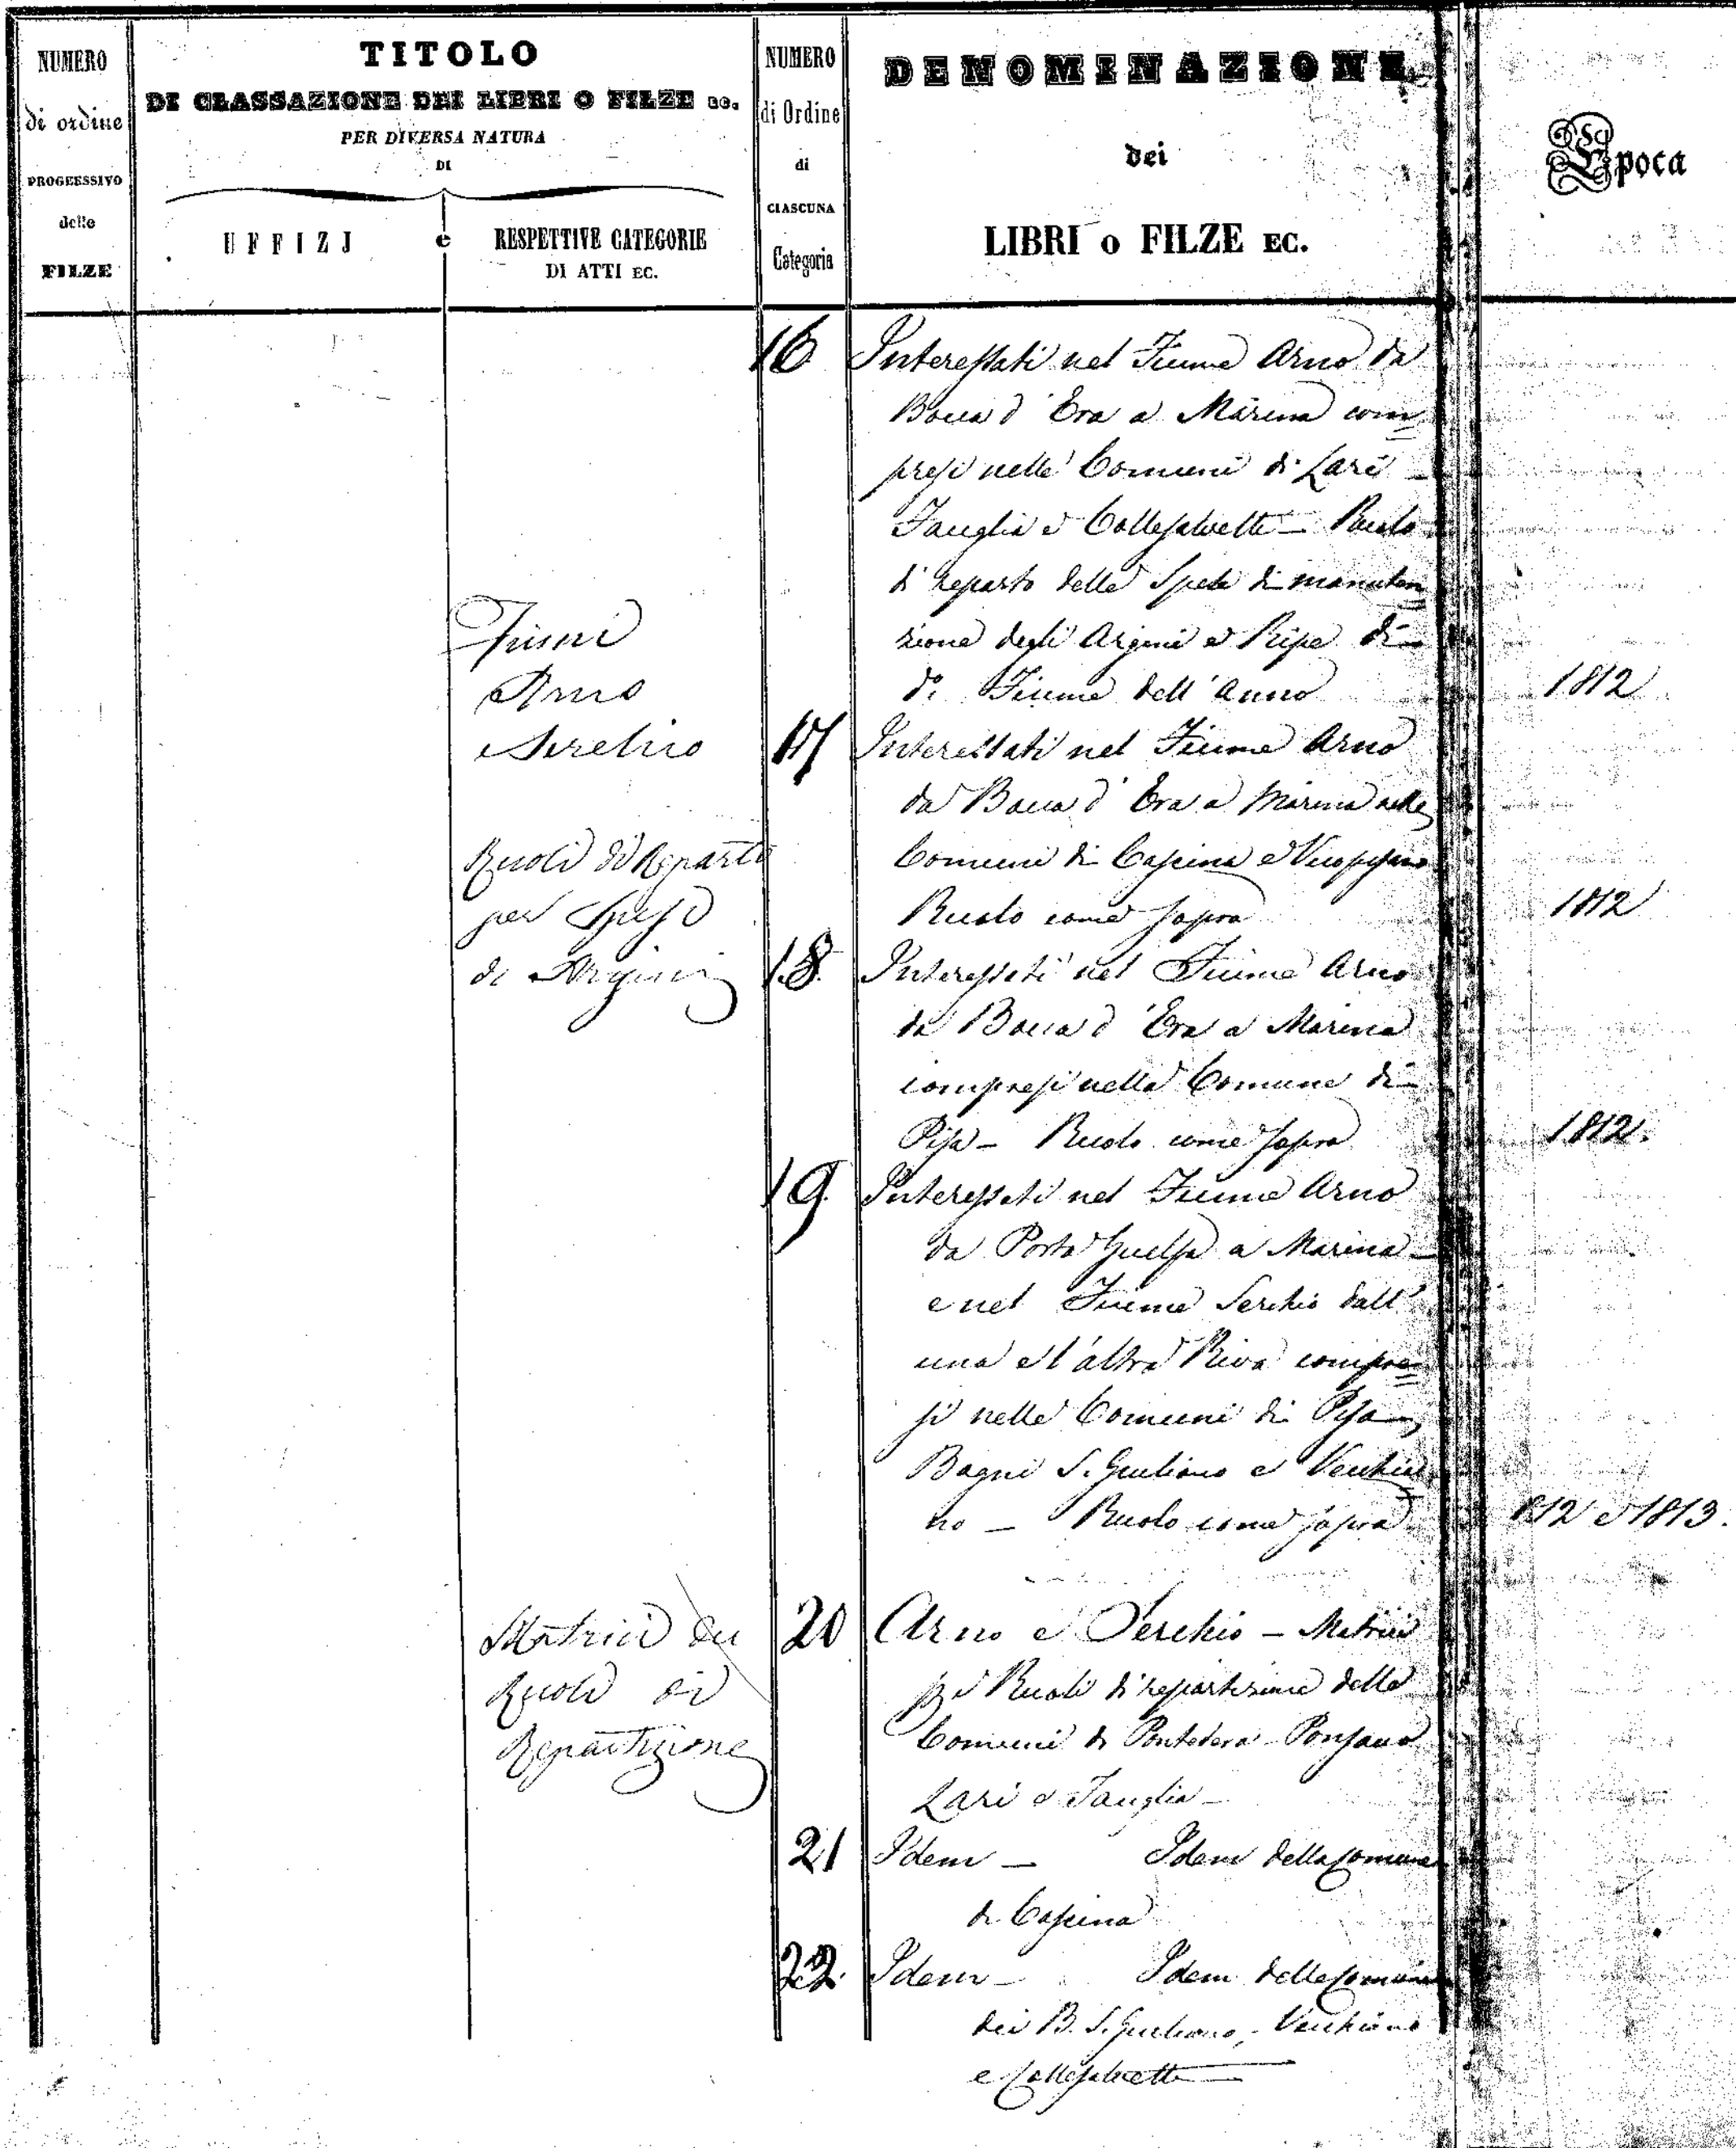 NUMERO
di ordine
PROGRESSIVO
delle
FILZE
TITOLO
DI CLASSAZIONE DEI LIBRI O FILZE EC.
PER DIVERSA NATURA
DI
UFFIZJ
e
RESPETTIVE CATEGORIE
DI ATTI EC.
NUMERO
di Ordine
di
CIASCUNA
Categoria
DENOMINAZIONE
dei
LIBRI o FILZE EC.
Epoca
Fiumi
Arno
e Serchio
Ruoli di Reparto
per Spese
di Argini
16 Interessati nel Fiume Arno da
Bocca d'Era a Marina com=
presi nelle Comuni di Lari
Fauglia e Collesalvetti – Ruolo
di reparto delle Spese di manuten
zione degli Argini e Ripe di
do Fiume dell'Anno 1812
17 Interessati nel Fiume Arno
da Bocca d'Era a Marina nelle
Comuni di Cascina e Vicopisano
Ruolo come sopra 1812
18. Interessati nel Fiume Arno
da Bocca d'Era a Marina
compresi nella Comune di
Pisa – Ruolo come sopra 1812.
19. Interessati nel Fiume Arno
da Porta Guelfa a Marina
e nel Fiume Serchio dall'
una e l'altra Riva compre=
si nelle Comuni di Pisa,
Bagni S. Giuliano e Vecchia
no – Ruolo come sopra 1812 e 1813.
Matrici dei
Ruoli di
Repartizione
20 Arno e Serchio – Matrici
pei Ruoli di repartizione delle
Comuni di Pontedera – Ponsacco
Lari e Fauglia –
21 Idem – Idem della Comune
di Cascina
22. Idem – Idem delle Comuni
dei B. S. Giuliano, Vecchiano
e Collesalvetti